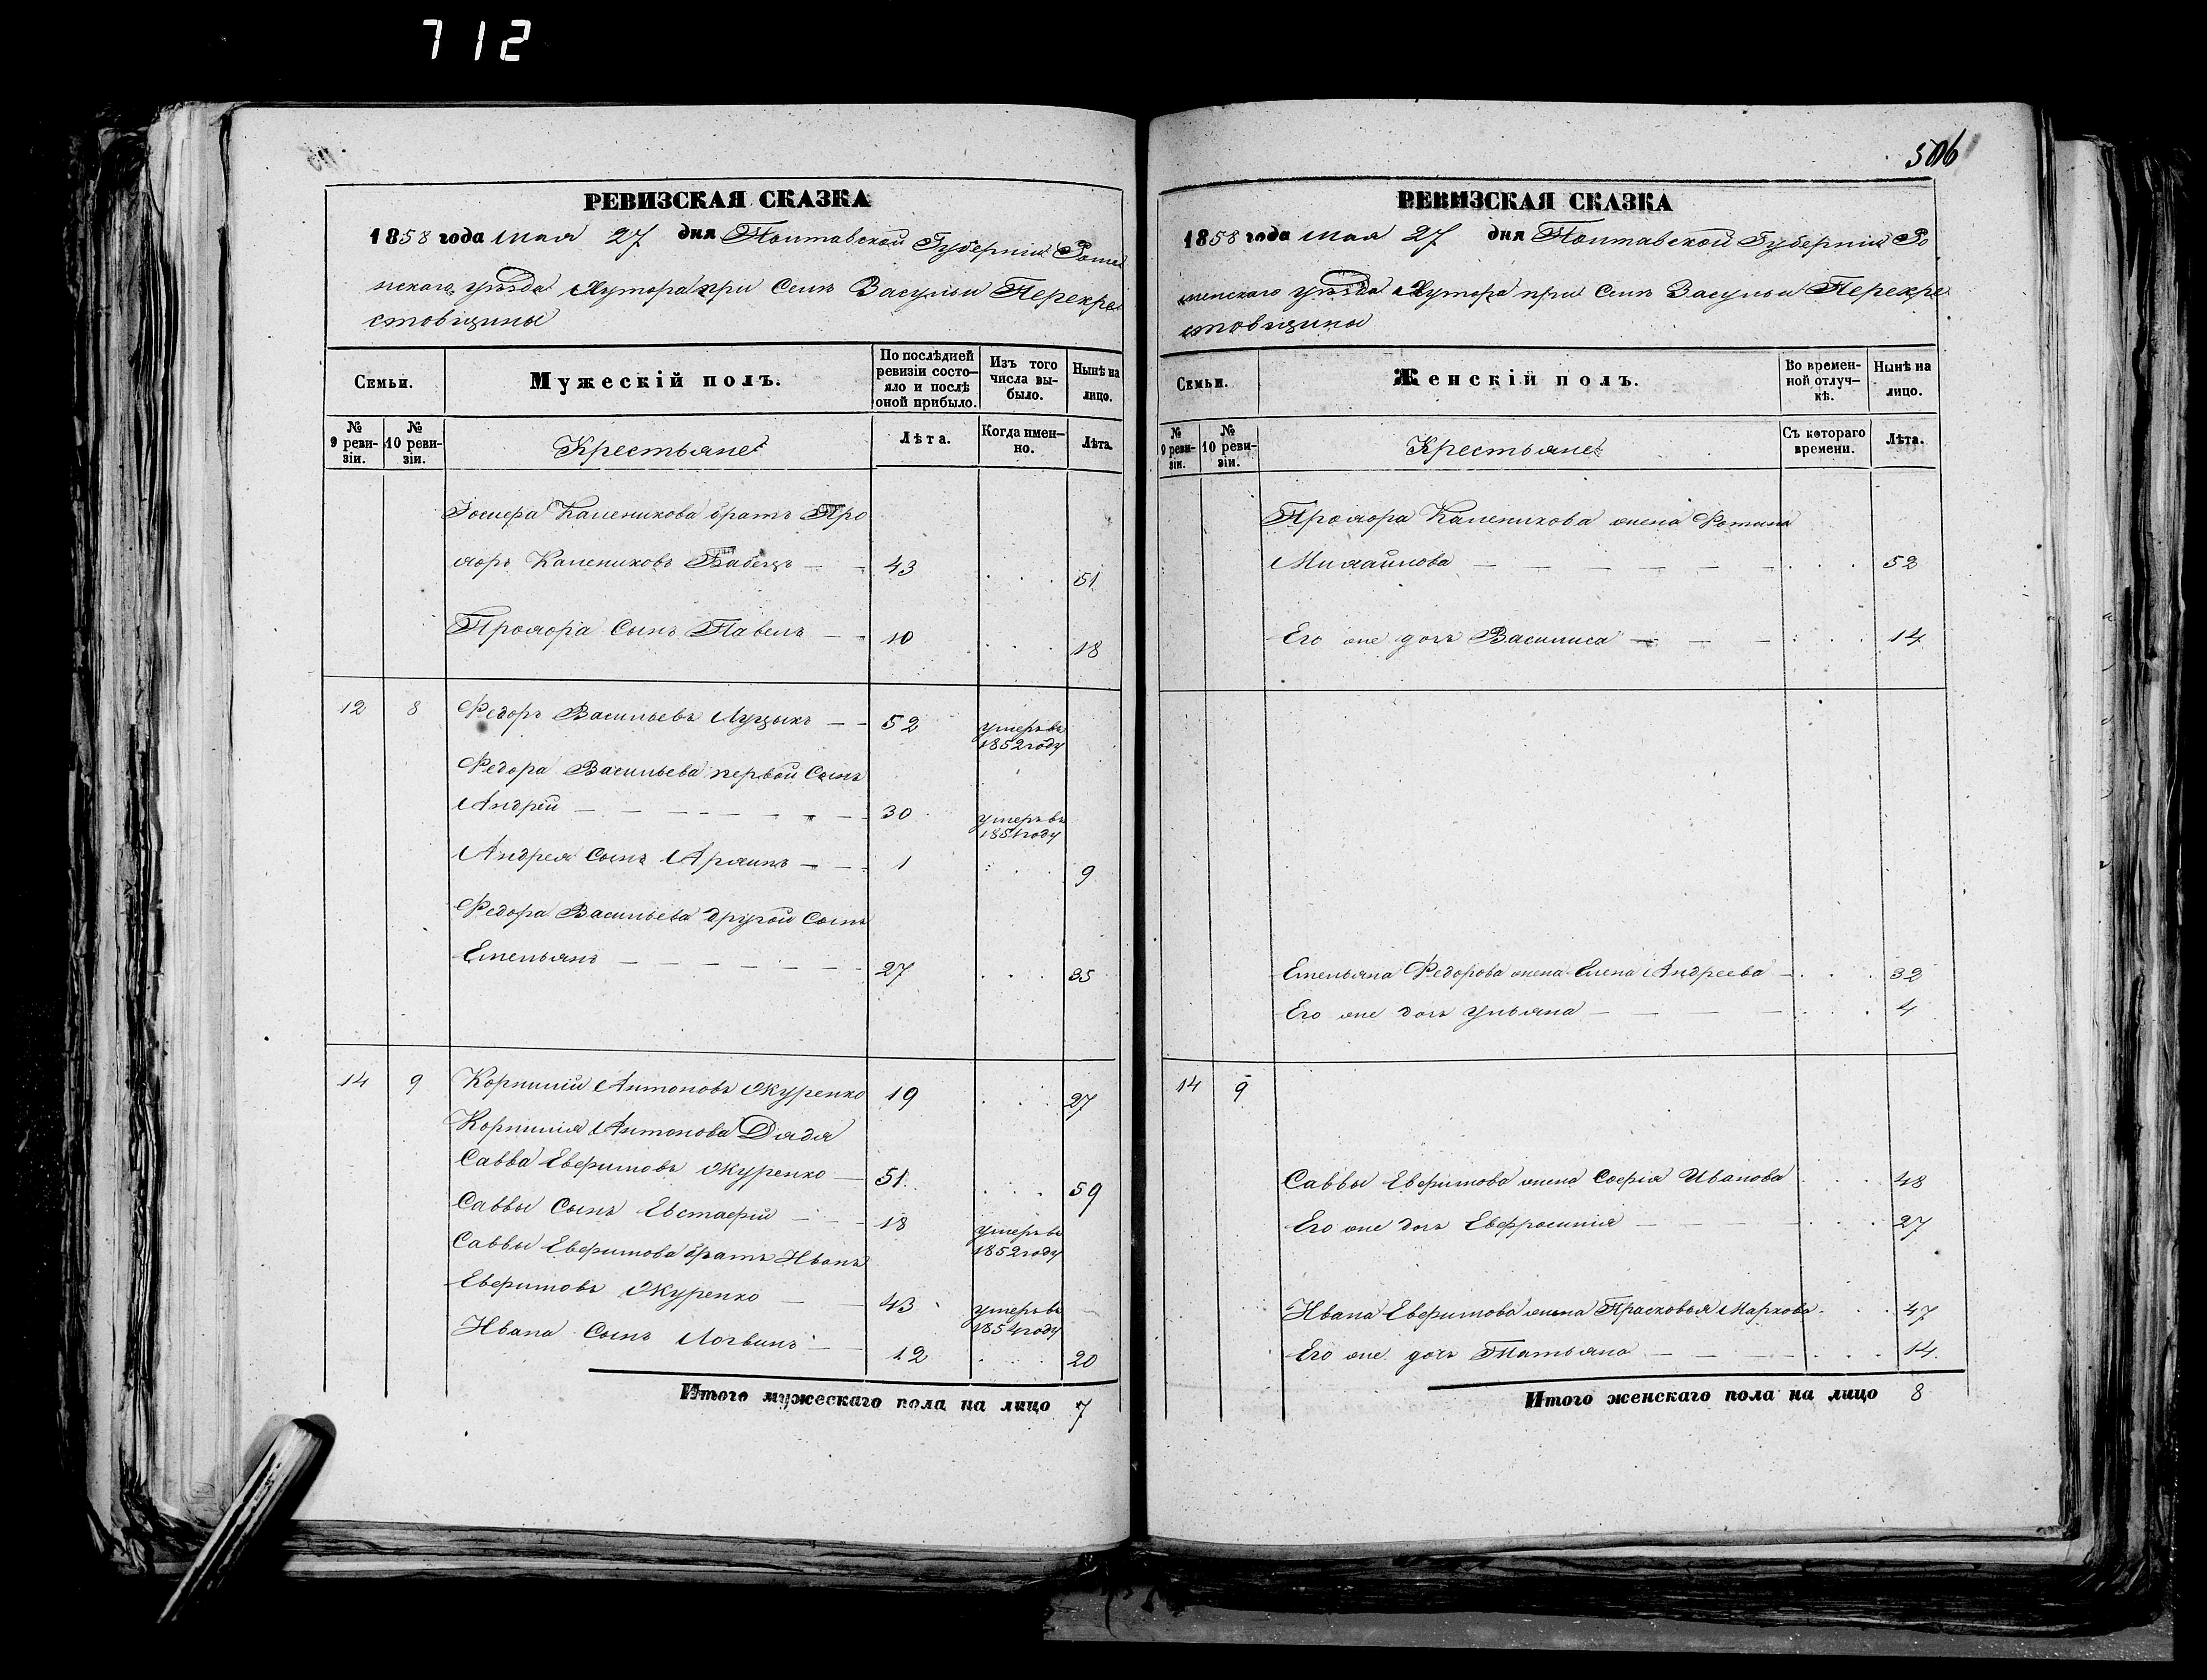 712
РЕВИЗСКАЯ СКАЗКА
1858 года мая 27 дня Полтавской Губерніи Ромен
нскаго уѣзда Хутора при Селѣ Засульи Перекре
стовщины
Семьи.
Мужескій полъ.
По послѣдней ревизіи состояло и послѣ оной прибыло.
Изъ того числа выбыло.
Нынѣ на лицо.
№ 9 ревизіи.
№ 10 ревизіи.
Крестьяне
Лѣта.
Когда именно.
Лѣта.
Каленикова братъ Про
хоръ Калениковъ Бабецъ — — 43 . . . 51
Прохора Сынъ Павелъ — — 10 . . . 18
12 8 Федоръ Васильевъ Луцыкъ — — 52 умеръ въ 1852 году
Федора Васильева первой Сынъ
Андрей — — — — — — 30 умеръ въ году
Андрея Сынъ Архипъ — — 1 . . . 9
Федора Васильева другой Сынъ
Емельянъ — — — — — — 27 . . . 35
14 9 Корнилій Антоновъ Окуренко 19 . . . 27
Корнилія Антонова Дядя
Савва Евфимовъ Окуренко — 51 . . . 59
Саввы Сынъ Евстафій — — 18 умеръ въ 1852 году
Саввы Евфимова братъ Иванъ
Евфимовъ Окуренко — — 43 умеръ въ 1854 году
Ивана Сынъ Логвинъ — — 12 . . . 20
Итого мужескаго пола на лицо 7
506
РЕВИЗСКАЯ СКАЗКА
1858 года мая 27 дня Полтавской Губерніи Ро
менскаго уѣзда Хутора при Селѣ Засульи Перекре
стовщины
Семьи.
Женскій полъ.
Во временной отлучкѣ.
Нынѣ на лицо.
№ 9 ревизіи.
№ 10 ревизіи.
Крестьяне
Съ котораго времени.
Лѣта.
Прохора Каленикова жена Фотина
Михайлова — — — — — — . . . 52
Его же дочь Василиса — — — . . . 14
Емельяна Федорова жена Елена Андреева — . . . 32
Его же дочь Ульяна — — — . . . 4
14 9
Саввы Евфимова жена Софія Иванова . . . 48
Его же дочь Евфросинія — — — . . . 27
Ивана Евфимова жена Прасковья Маркова . . . 47
Его же дочь Татьяна — — — . . . 14
Итого женскаго пола на лицо 8